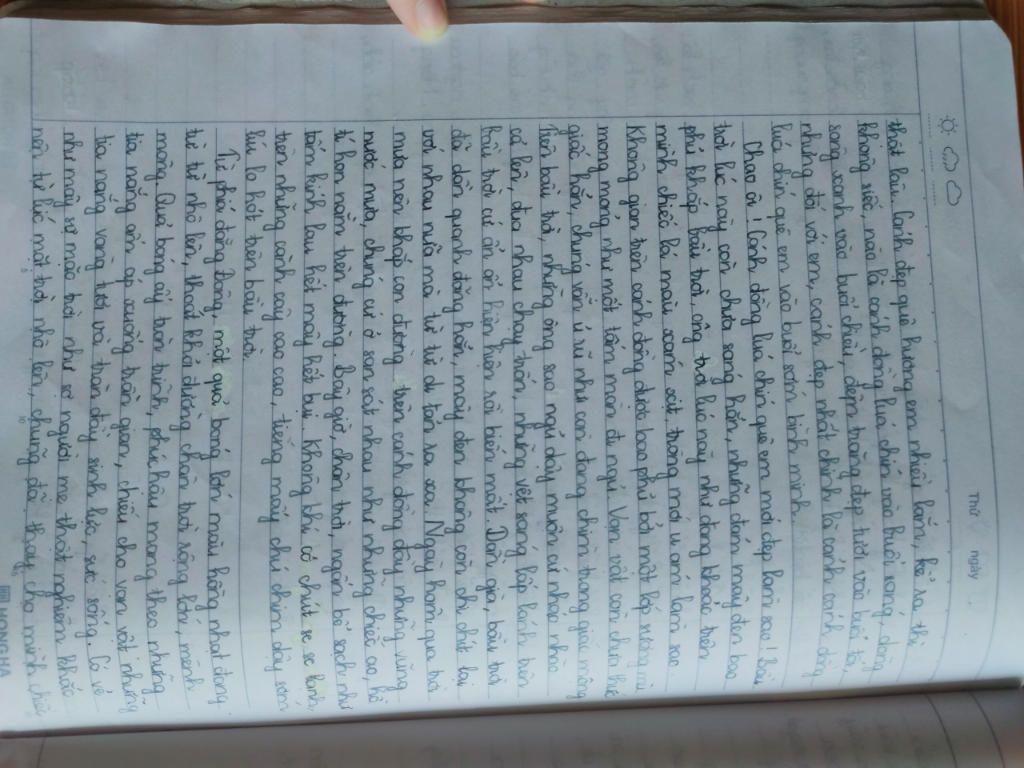 Thứ ngày
thật lâu. Cảnh đẹp quê hương em nhiều lắm, kể ra thì
không xiết, nào là cánh đồng lúa chín vào buổi sáng, dòng
sông xanh vào buổi chiều, đêm trăng đẹp tươi vào buổi tối,
nhưng đối với em, cảnh đẹp nhất chính là cánh cánh đồng
luá chín quê em vào buổi sớm bình minh.
Chao ôi! Cánh đồng lúa chín quê em mới đẹp làm sao! Bầu
trời lúc này còn chưa sáng hẳn, những đám mây đen bao
phủ khắp bầu trời, ông trời lúc này như đang khoác trên
mình chiếc áo màu xám xịt, trông mới u ám làm sao.
Không gian trên cánh đồng được bao phủ bởi một lớp sương mù
mỏng mỏng như một tấm màn đi ngủ. Vạn vật còn chưa thức
giấc hẳn, chúng vẫn ủ rũ như còn đang chìm trong giấc mộng.
Trên bầu trời, những ông sao ngủ dậy muộn cứ nhấp nhô
cả lên, đua nhau chạy trốn, những vệt sáng lấp lánh trên
bầu trời cứ ẩn ẩn hiện hiện rồi biến mất. Dần già, bầu trời
đã dần quang đãng hơn, mây đen không còn chi chít lại
với nhau nữa mà từ từ di tản ra xa. Ngày hôm qua trời
mưa nên khắp con đường trên cánh đồng đầy những vũng
nước mưa, chúng cứ ở san sát nhau như những chiếc ao, hồ
tí hon nằm trên đường. Bây giờ, chân trời, ngấn bể sạch như
tấm kính lau hết mây hết bụi. Không khí có chút se se lạnh,
trên những cành cây cao cao, tiếng mấy chú chim dậy sớm
líu lo hót trên bầu trời.
Từ phía đằng Đông, một quả bóng lớn màu hồng nhạt đang
từ từ nhô lên, thoát khỏi đường chân trời rộng lớn, mênh
mông. Quả bóng ấy tròn trĩnh, phúc hậu mang theo những
tia nắng ấm áp xuống trần gian, chiếu cho vạn vật những
tia nắng vàng tươi và tràn đầy sinh lực, sức sống. Có vẻ
như mây sợ mặt trời như sợ người mẹ thật nghiêm khắc
nên từ lúc mặt trời nhô lên, chúng đã thay cho mình chiếc
HONG HA